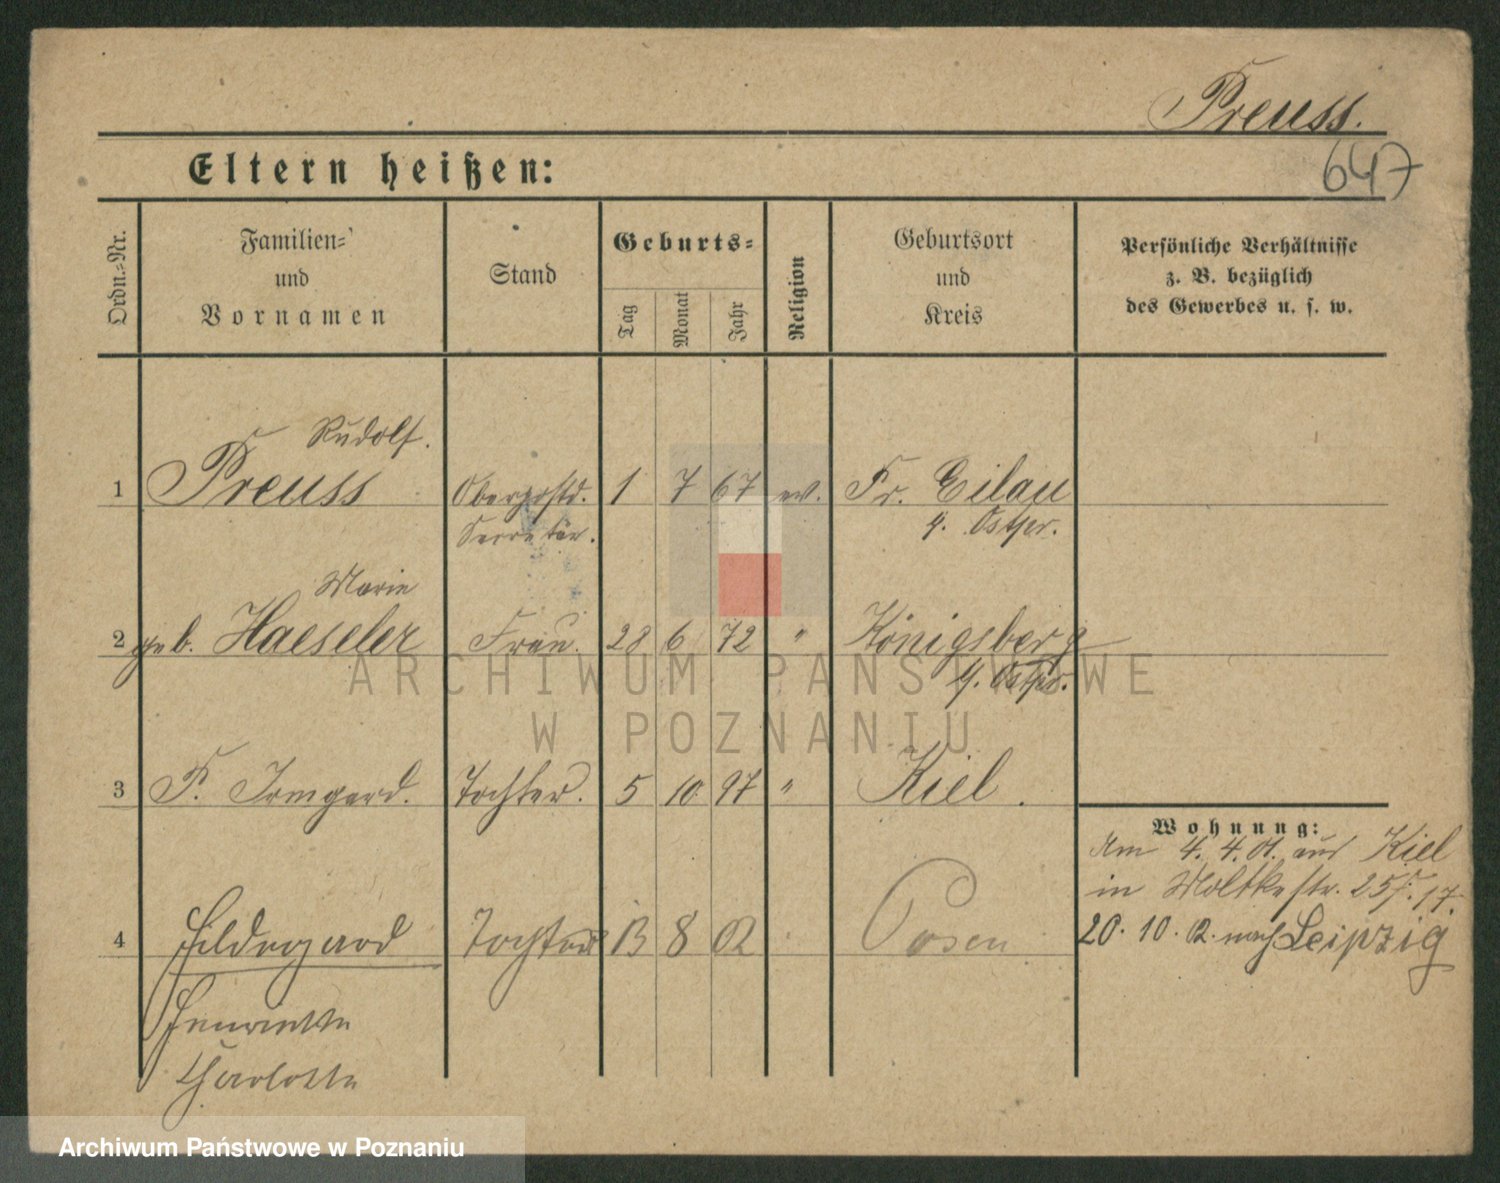 Preuss.
647
Eltern heißen:
Ordn.-Nr.
Familien-
und
Vornamen
Stand
Geburts-
Tag
Monat
Jahr
Religion
Geburtsort
und
Kreis
Persönliche Verhältnisse
z. B. bezüglich
des Gewerbes u. s. w.
Rudolf.
1 Preuss Oberpostd. 1 7 67 ev. Pr. Eilau
Secretär. Ostpr.
Marie
2 geb. Haeseler Frau. 28 6 72 " Königsberg
Ostpr.
3 P. Irmgard. Tochter. 5 10 97 " Kiel.
Wohnung:
Am 4. 4. 01. aus Kiel
in Moltkestr. 17.
4 Hildegard Tochter 13 8 02 Posen
20. 10. 02. nach Leipzig
Henriette
Charlotte
ARCHIWUM PAŃSTWOWE
W POZNANIU
Archiwum Państwowe w Poznaniu